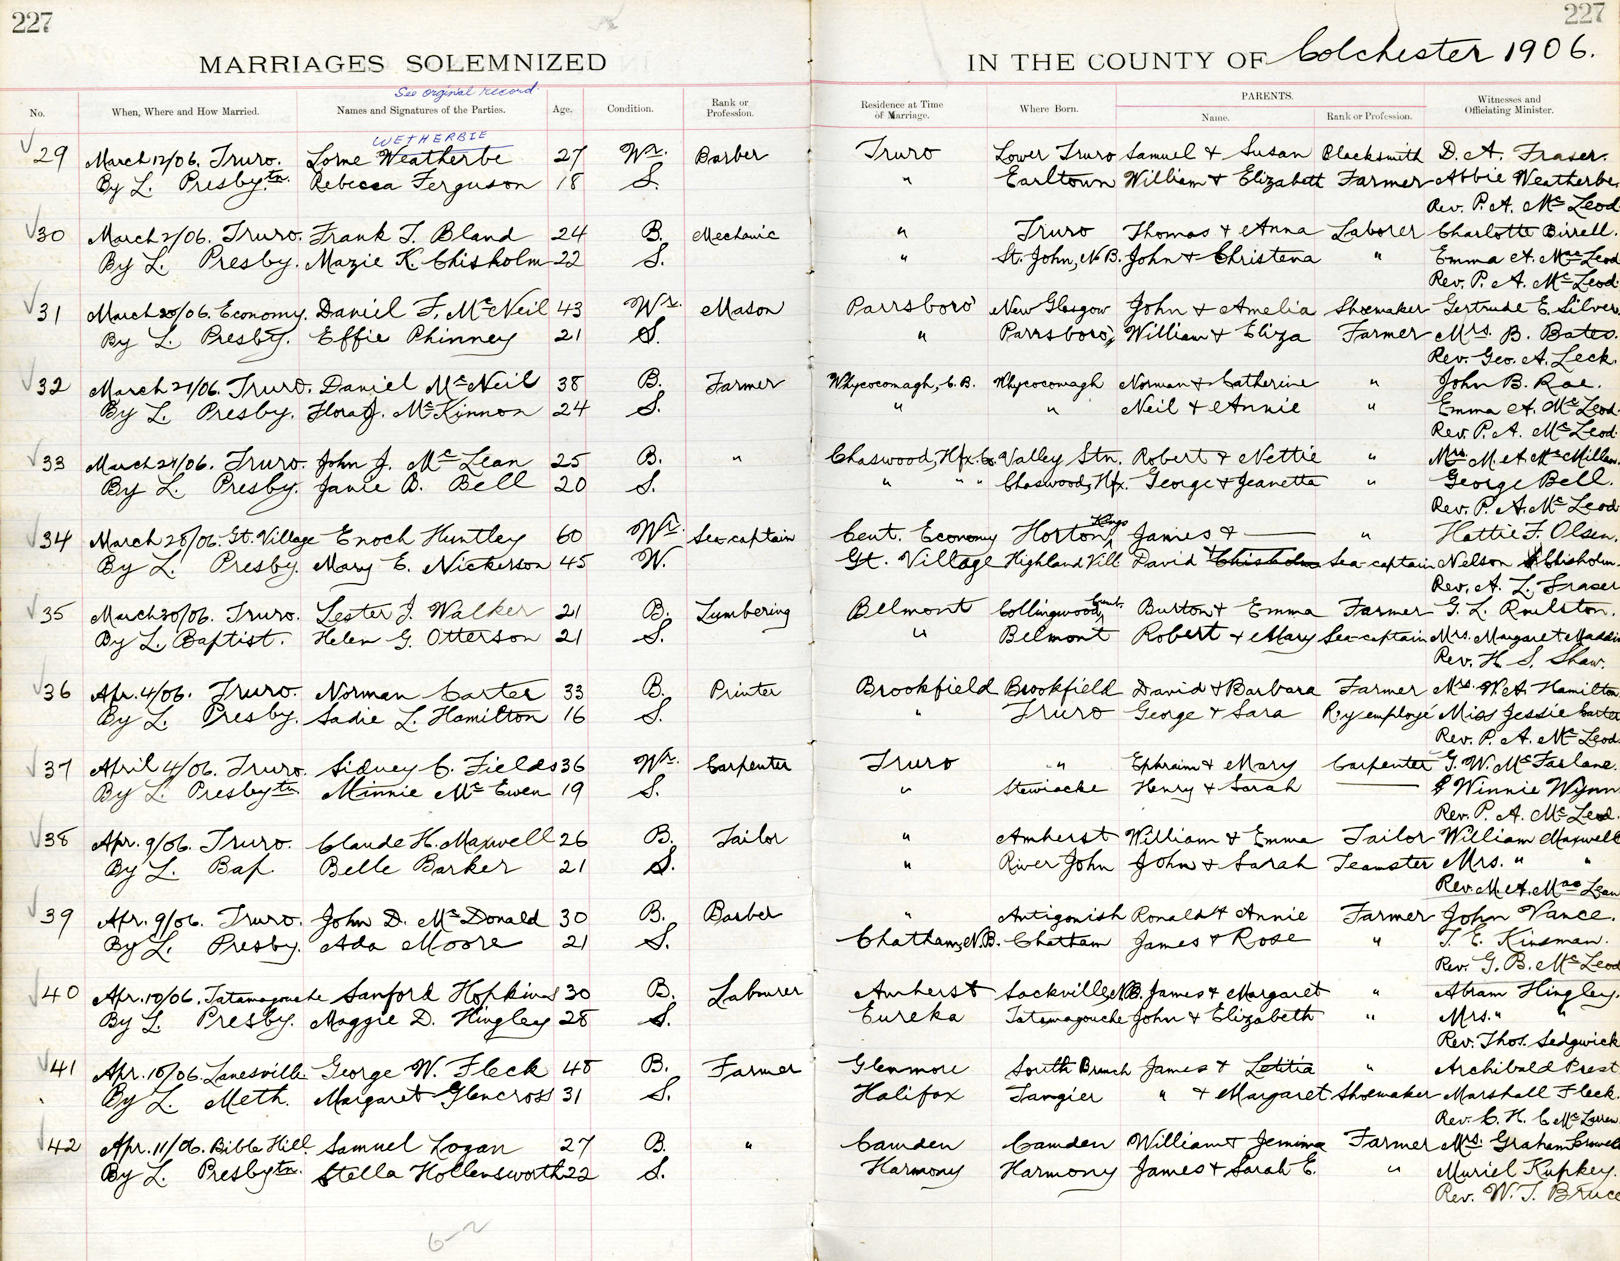 227
227
MARRIAGES SOLEMNIZED
IN THE COUNTY OF Colchester 1906.
See orginal record
No. When, Where and How Married. Names and Signatures of the Parties. Age. Condition. Rank or Profession. Residence at Time of Marriage. Where Born. PARENTS. Name. Rank or Profession. Witnesses and Officiating Minister.
WETHERBIE
29 March 12/06. Truro. Lorne Weatherbe 27 Wr. Barber Truro Lower Truro Samuel & Susan Blacksmith D. A. Fraser.
By L. Presbytn. Rebecca Ferguson 18 S. " Earltown William & Elizabeth Farmer Abbie Weatherbe.
Rev. P. A. McLeod
30 March 2/06. Truro. Frank T. Bland 24 B. Mechanic " Truro Thomas & Anna Laborer Charlotte Birrell.
By L. Presby. Mazie K. Chisholm 22 S. " St. John, N.B. John & Christena " Emma A. McLeod
Rev. P. A. McLeod
31 March 20/06. Economy. Daniel F. McNeil 43 Wr. Mason Parrsboro' New Glasgow John & Amelia Shoemaker Gertrude E. Silver.
By L. Presby. Effie Phinney 21 S. " Parrsboro', William & Eliza Farmer Mrs. B. Bates.
Rev. Geo. A. Leck.
32 March 21/06. Truro. Daniel McNeil 38 B. Farmer Whycocomagh, C.B. Whycocomagh Norman & Catherine " John B. Rae.
By L. Presby. Flora J. McKinnon 24 S. " " Neil & Annie " Emma A. McLeod.
Rev. P. A. McLeod.
33 March 28/06. Truro. John J. McLean 25 B. " Chaswood, Hfx. Co. Valley Stn. Robert & Nettie " Mrs. M. A. McMillan.
By L. Presby. Janie B. Bell 20 S. " " " Chaswood, Hfx. George & Jeanetta George Bell.
Rev. P. A. McLeod
34 March 28/06. Gt. Village Enoch Huntley 60 Wr. Sea-captain Cent. Economy Horton, Kings James & — " Hattie F. Olsen.
By L. Presby. Mary E. Nickerson 45 W. Gt. Village Highland Vill David & Chisholm Sea-captain Nelson Chisholm.
Rev. A. L. Fraser
35 March 30/06. Truro. Lester J. Walker 21 B. Lumbering Belmont Collingwood, Cumb. Burton & Emma Farmer G. L. Roulston.
By L. Baptist. Helen G. Otterson 21 S. " Belmont Robert & Mary Sea-captain Mrs. Margaret Maddin
Rev. H. S. Shaw.
36 Apr. 4/06. Truro. Norman Carter 33 B. Printer Brookfield Brookfield David & Barbara Farmer Mrs. W. A. Hamilton
By L. Presby. Sadie L. Hamilton 16 S. " Truro George & Sara R'y employé Miss Jessie Carter
Rev. P. A. McLeod.
37 April 4/06. Truro. Sidney C. Fields 36 Wr. Carpenter Truro " Ephraim & Mary Carpenter G. W. McFarlane.
By L. Presbytn. Minnie McEwen 19 S. " Stewiacke Henry & Sarah — Winnie Wynn
Rev. P. A. McLeod.
38 Apr. 9/06. Truro. Claude H. Maxwell 26 B. Tailor " Amherst William & Emma Tailor William Maxwell
By L. Bap. Belle Barker 21 S. " River John John & Sarah Teamster Mrs. " "
Rev. M. A. MacLean
39 Apr. 9/06. Truro. John D. McDonald 30 B. Barber " Antigonish Ronald & Annie Farmer John Vance.
By L. Presby. Ada Moore 21 S. Chatham, N.B. Chatham James & Rose " T. E. Kinsman.
Rev. G. B. McLeod
40 Apr. 10/06. Tatamagouche Sanford Hopkins 30 B. Labourer Amherst Sackville, N.B. James & Margaret " Abram Hingley.
By L. Presby. Maggie D. Hingley 28 S. Eureka Tatamagouche John & Elizabeth " Mrs. " "
Rev. Thos. Sedgwick
41 Apr. 10/06. Lanesville. George W. Fleck 48 B. Farmer Glenmore South Branch James & Letitia " Archibald Prest
By L. Meth. Margaret Glencross 31 S. Halifax Tangier " & Margaret Shoemaker Marshall Fleck.
Rev. C. H. C. McLarren
42 Apr. 11/06. Bible Hill. Samuel Logan 27 B. " Camden Camden William & Jemima Farmer Mrs. Graham Crowell
By L. Presbytn. Stella Hollensworth 22 S. Harmony Harmony James & Sarah E. " Muriel Kupkey.
Rev. W. T. Bruce